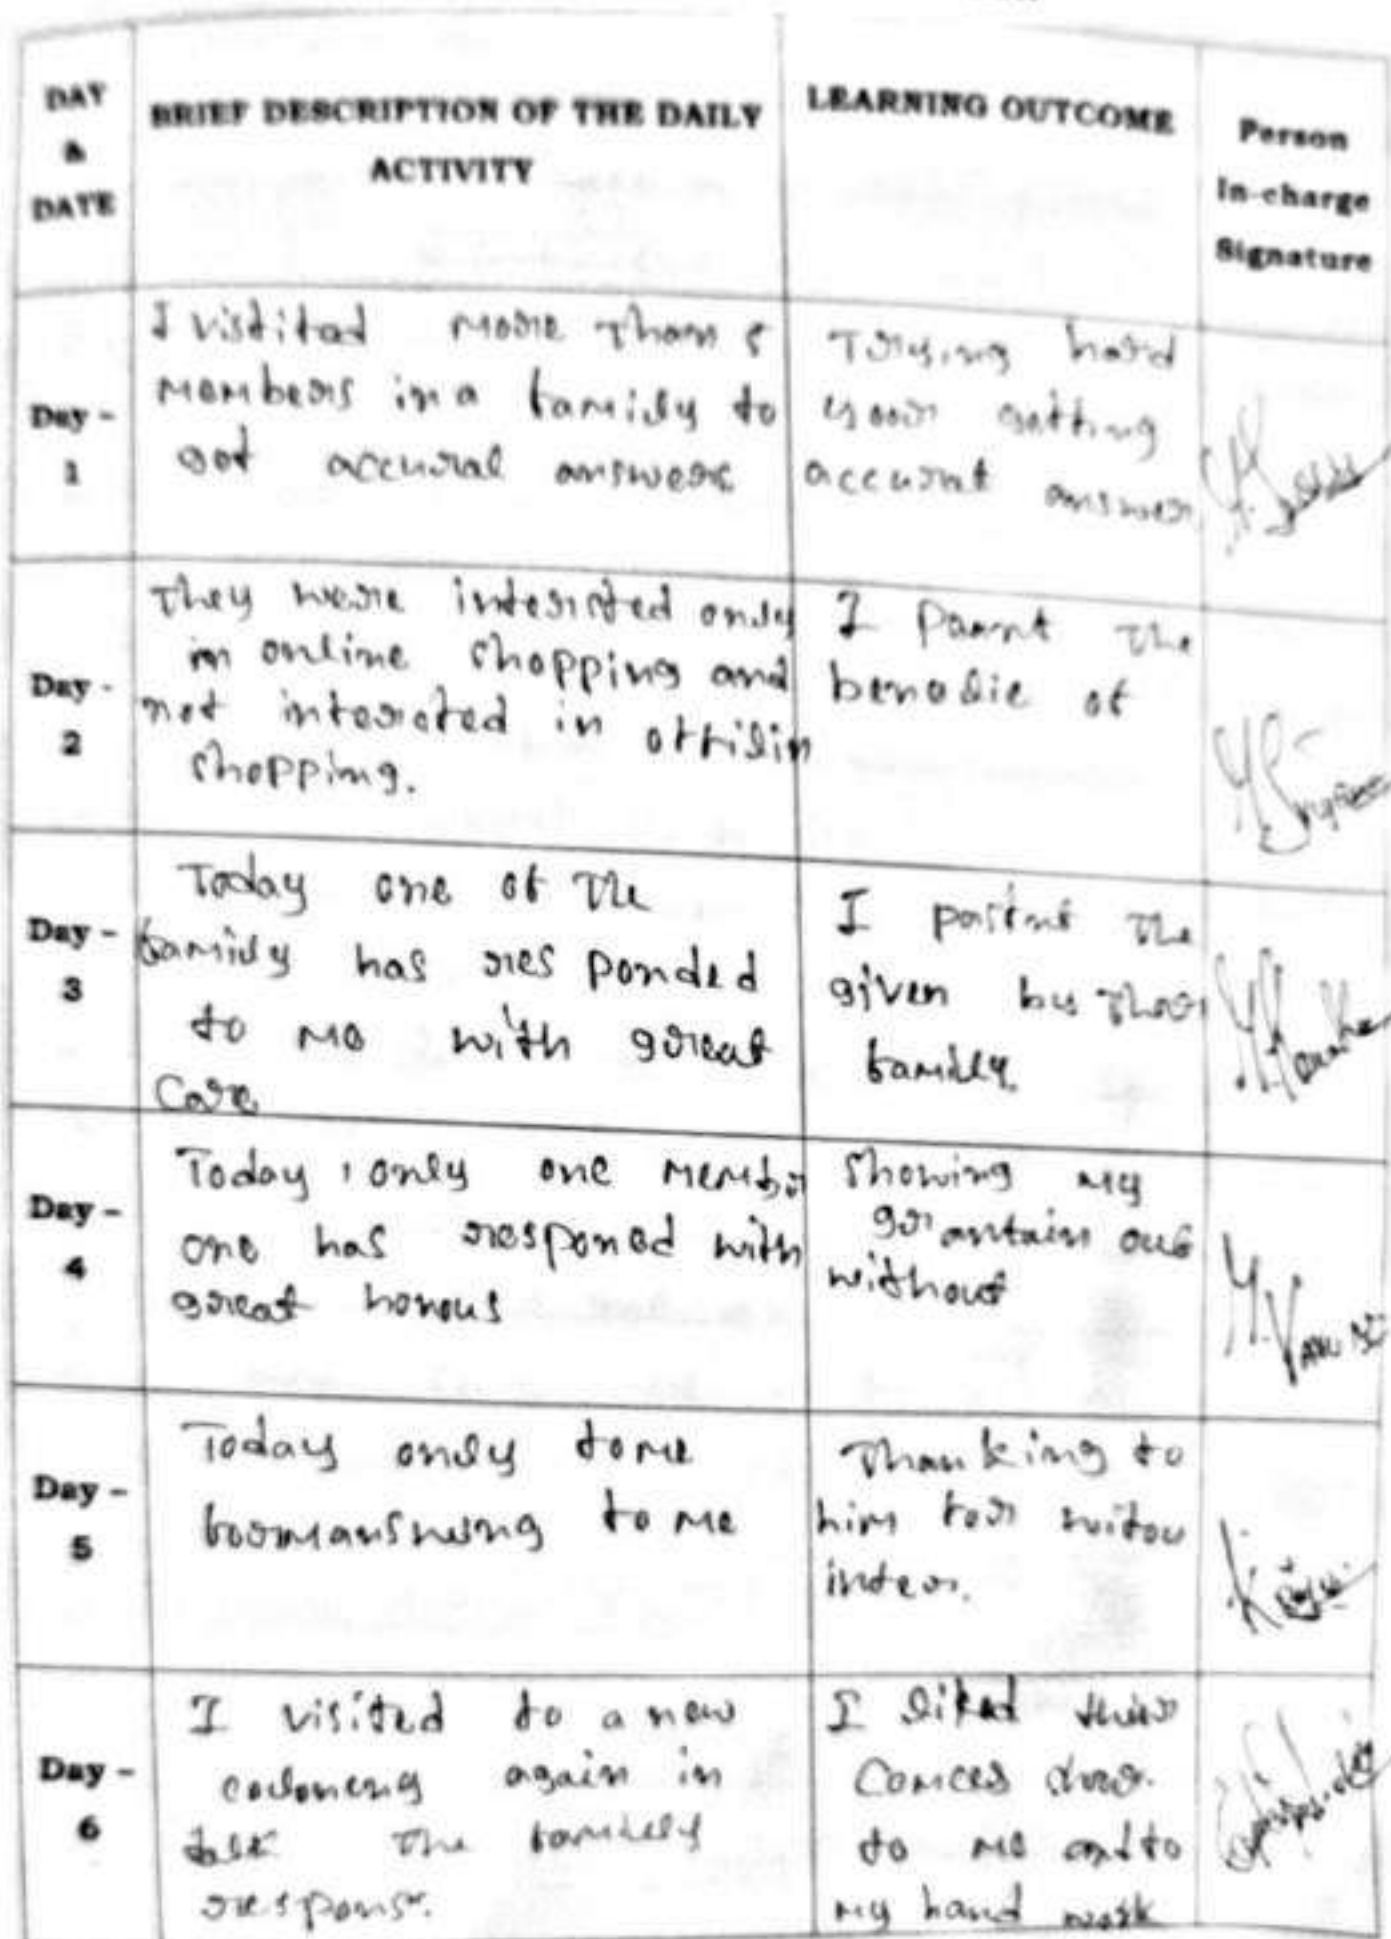 DAY
&
DATE
BRIEF DESCRIPTION OF THE DAILY
ACTIVITY
LEARNING OUTCOME
Person
In-charge
Signature
Day -
1
I vistited more than 5
members in a family to
got accural answers
Trying hard
your getting
accurat answer
Day -
2
They were interisted only
in online shopping and
not interested in offilin
shopping.
I the
of
Day -
3
Today one of the
family has res ponded
to me with great
Care
I the
given by
family.
Day -
4
Today, only one member
one has responed with
great honous
Showing my
without
M. Vamsi
Day -
5
Today only
to me
Thanking to
him for
inter.
K. Raju
Day -
6
I visited to a new
again in
talk the familly
respons.
I liked
to me and to
my hand work